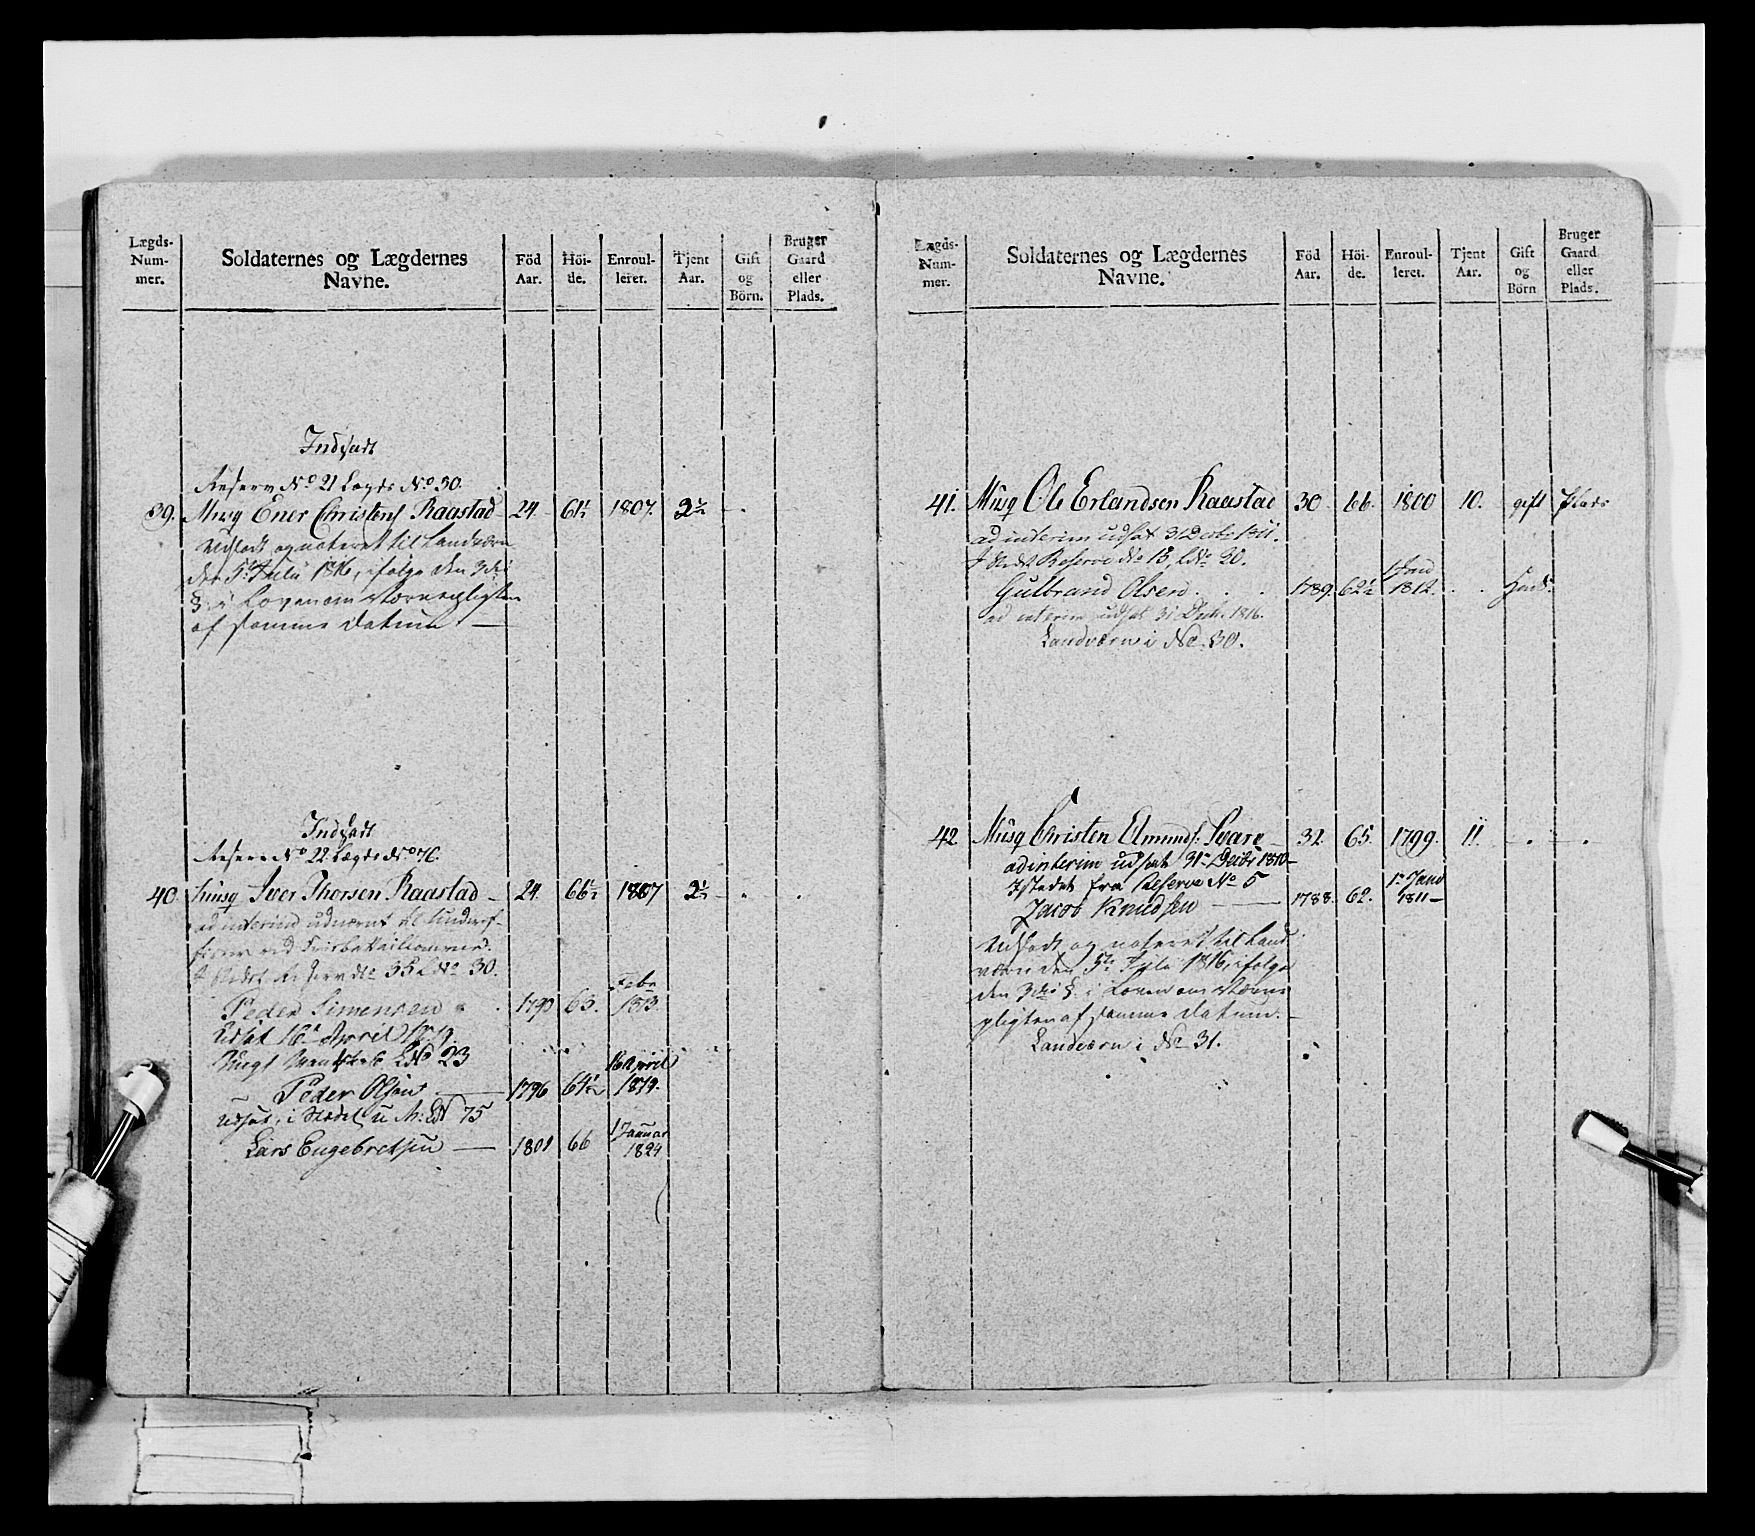 Lægds-Num-mer. Soldaternes og Lægdernes Navne. Föd Aar. Höi-de. Enroul-leret. Tjent Aar. Gift og Börn. Bruger Gaard eller Plads.
Indsadt
Reserv No 21 Lægds No 30.
39. Musq Ener Christens Raastad 24 61½ 1807. 2½ - -
Udsadt og noteret til Landværn
den 5te Julii 1816, ifølge den 3die
§ i Loven om Værnepligten
af samme Datum. —
Indsadt
Reserv No 22 Lægds No 76.
40. Musq Iver Thorsen Raastad - 24. 66½ 1807 2½ - -
ad interim udnævnt til Underof-
I Stedet Reserv No 35 L No 30.
Peder Simensen 1790 63. Febr 1813.
Udsat 16de April 1819.
L No 23
Peder Olsen — 1796 64½ 16 April 1819.
Udsat, i Stedet u M: L No 75
Lars Engebretsen — 1801 66 1 Januar 1824
Lægds-Num-mer. Soldaternes og Lægdernes Navne. Föd Aar. Höi-de. Enroul-leret. Tjent Aar. Gift og Börn Bruger Gaard eller Plads.
41. Musq Ole Erlandsen Raastad 30 66. 1800 10. gift Plads
ad interim udsat 31 Decbr 1811.
I Stedet Reserve No 13, L No 20.
Gulbrand Olsen . . . 1789. 62½ 1 Janu 1812. . .
ad interim udsat 31 Decbr. 1816.
Landværn i No. 30.
42 Musq Christen Elmunds: Svare — 32 65. 1799. 11. - -
ad interim udsat 31te Decbr 1810 —
Istedet fra Reserve No 5
Jacob Knudsen — 1788. 62. 1te Janu 1811 —
Udsadt og noteret til Land-
værn den 5te Julii 1816, ifølge
den 3die § i Loven om Værne-
pligten af samme Datum. —
Landværn i No 31.